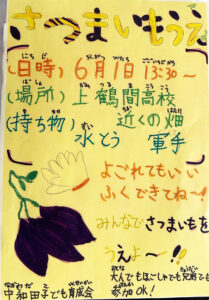 さつまいもうえ
(日時) 6月1日 13:30～
(場所) 上鶴間高校
近くの畑
(持ち物) 水とう 軍手
よごれてもいい
ふくできてね～!
みんなでさつまいもを
うえよ～!!
大人でもほごしゃでも兄弟でも
中和田子ども育成会 参加OK!